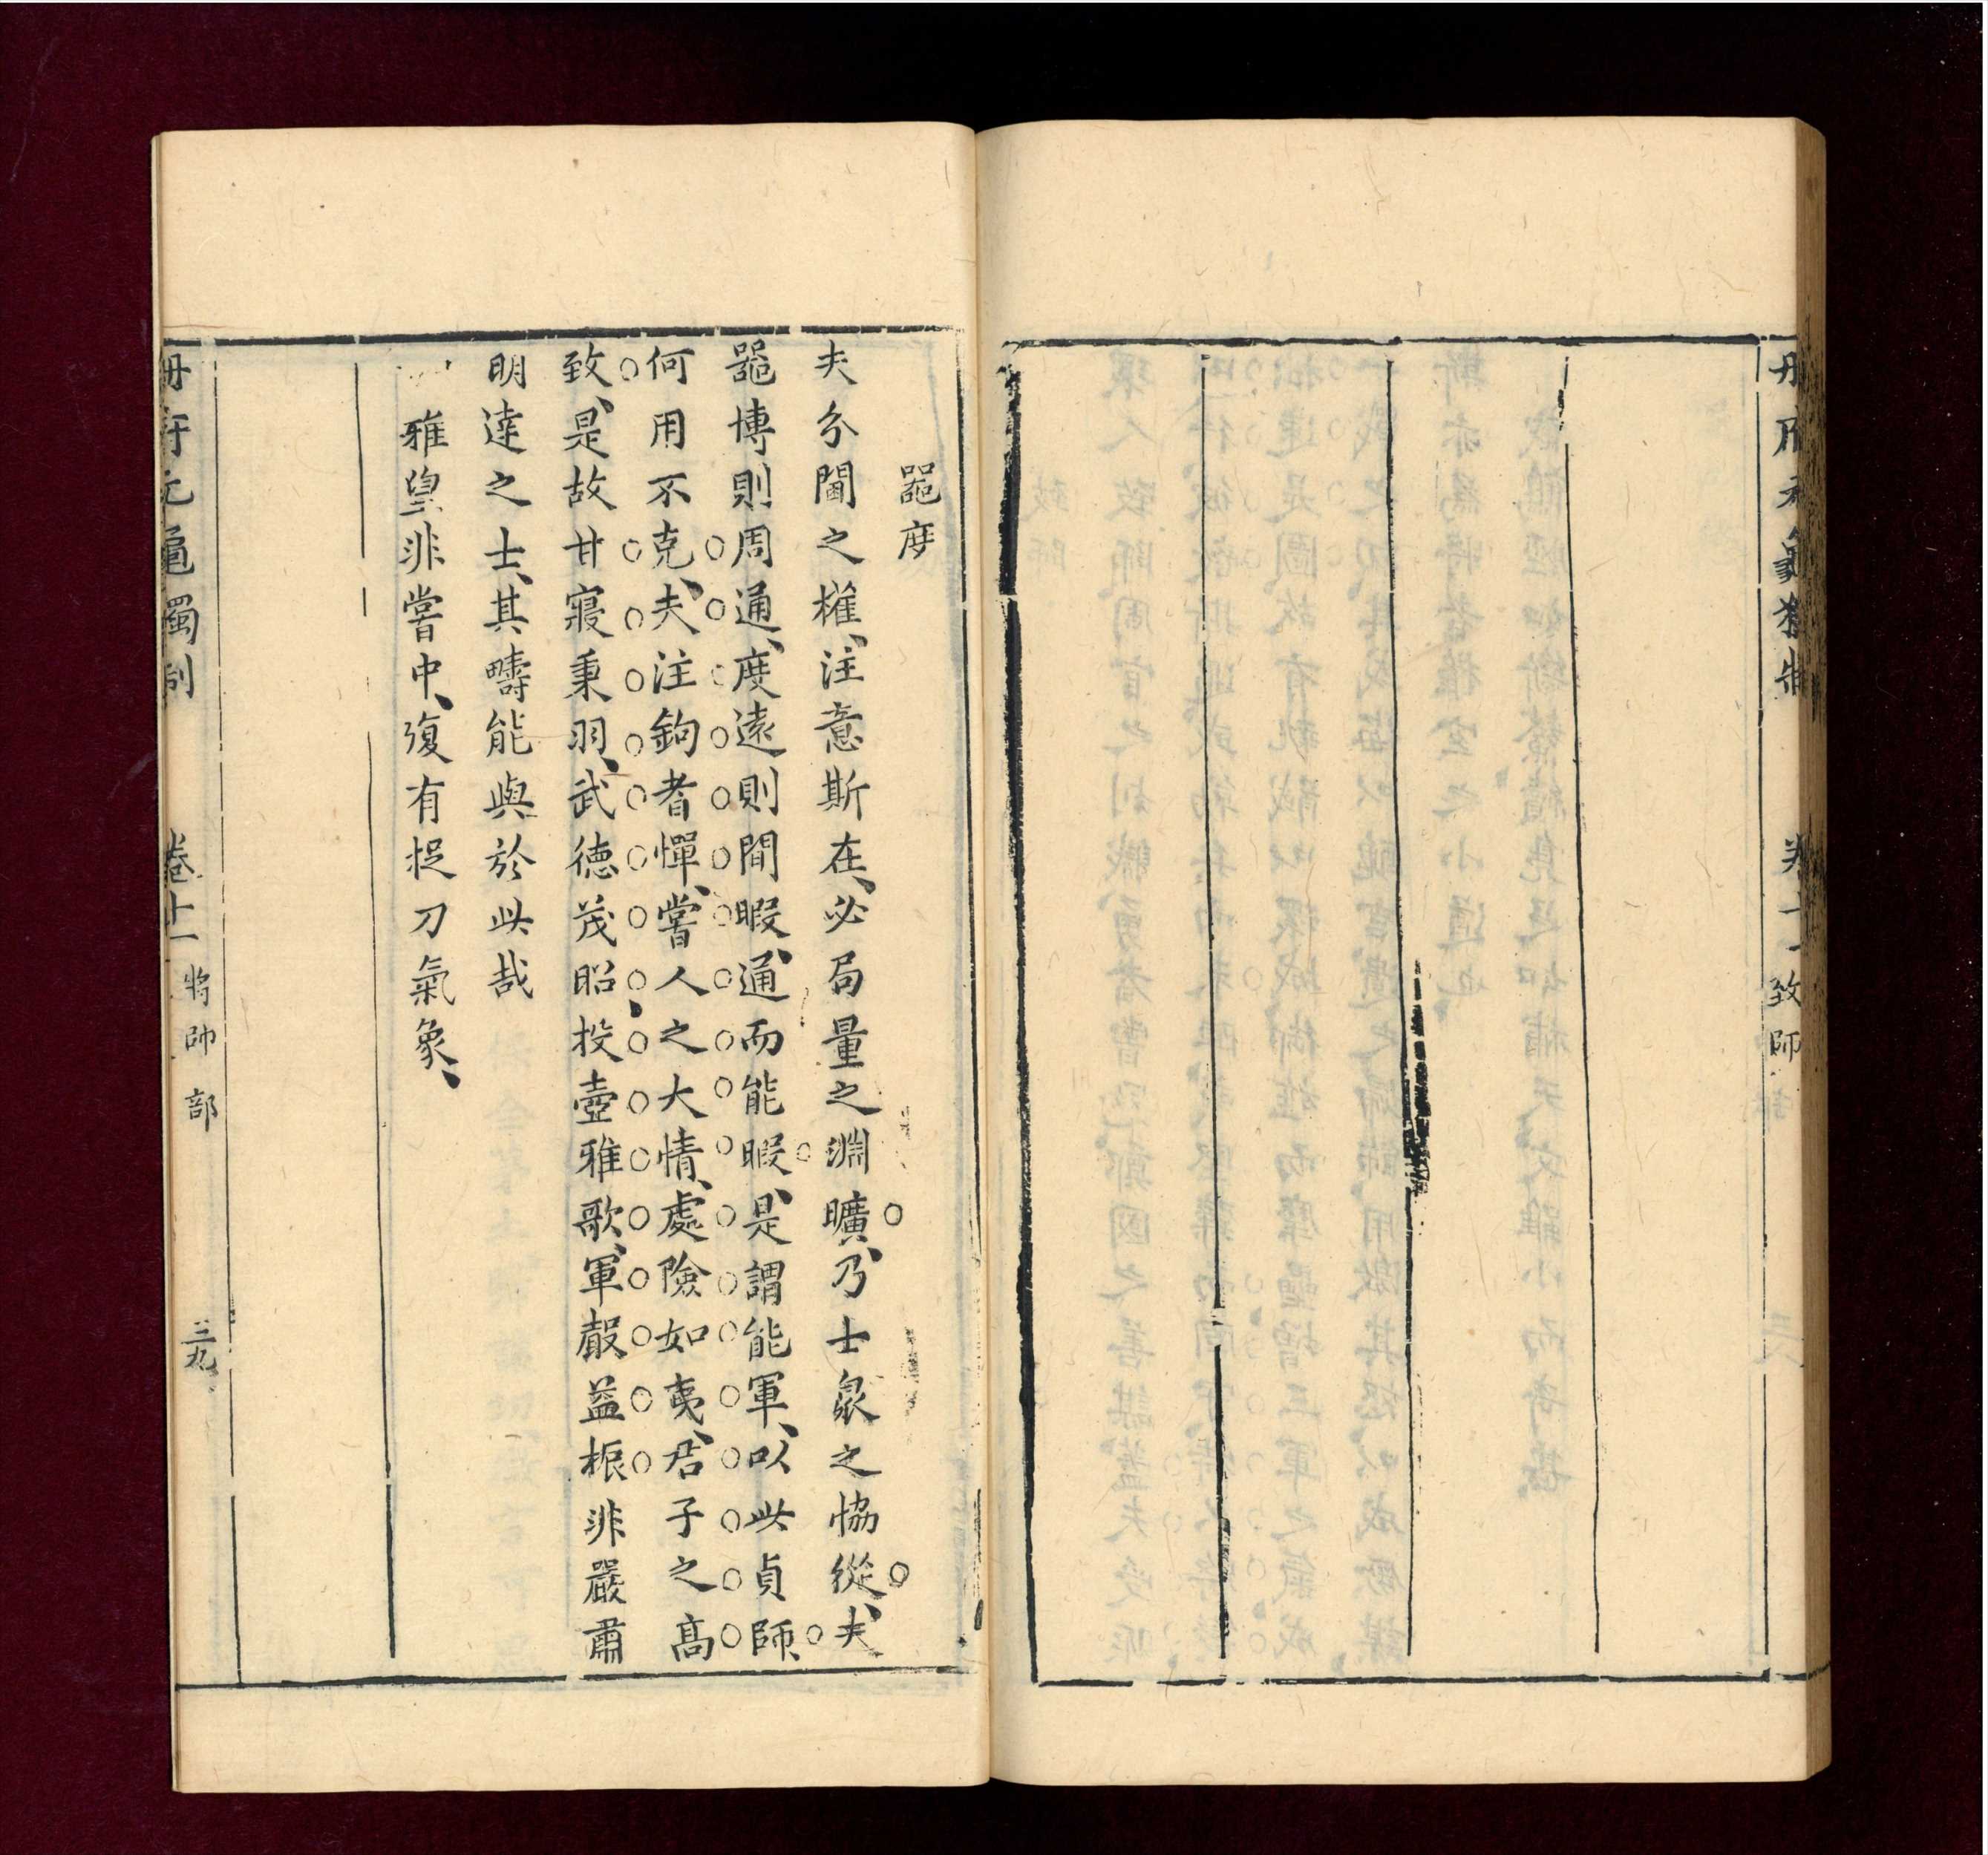 冊府元龜獨制
卷十一 致師
器度
夫分閫之權、注意斯在、必局量之淵曠、乃士衆之協從、夫
器博則周通、度遠則閒暇、通而能暇、是謂能軍、以此貞師、
何用不克、夫注鉤者憚、嘗人之大情、處險如夷、君子之高
致、是故甘寢秉羽、武德茂昭、投壺雅歌、軍嚴益振非嚴肅
明達之士、其疇能與於此哉
雅望非嘗中、復有捉刀氣象、
冊府元龜獨制
卷十一 將帥部
三九